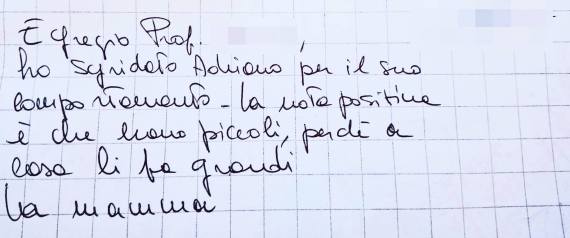 Egregio Prof.
ho sgridato Adriano per il suo
comportamento - la nota positiva
è che erano piccoli, perché a
casa li fa grandi
La mamma